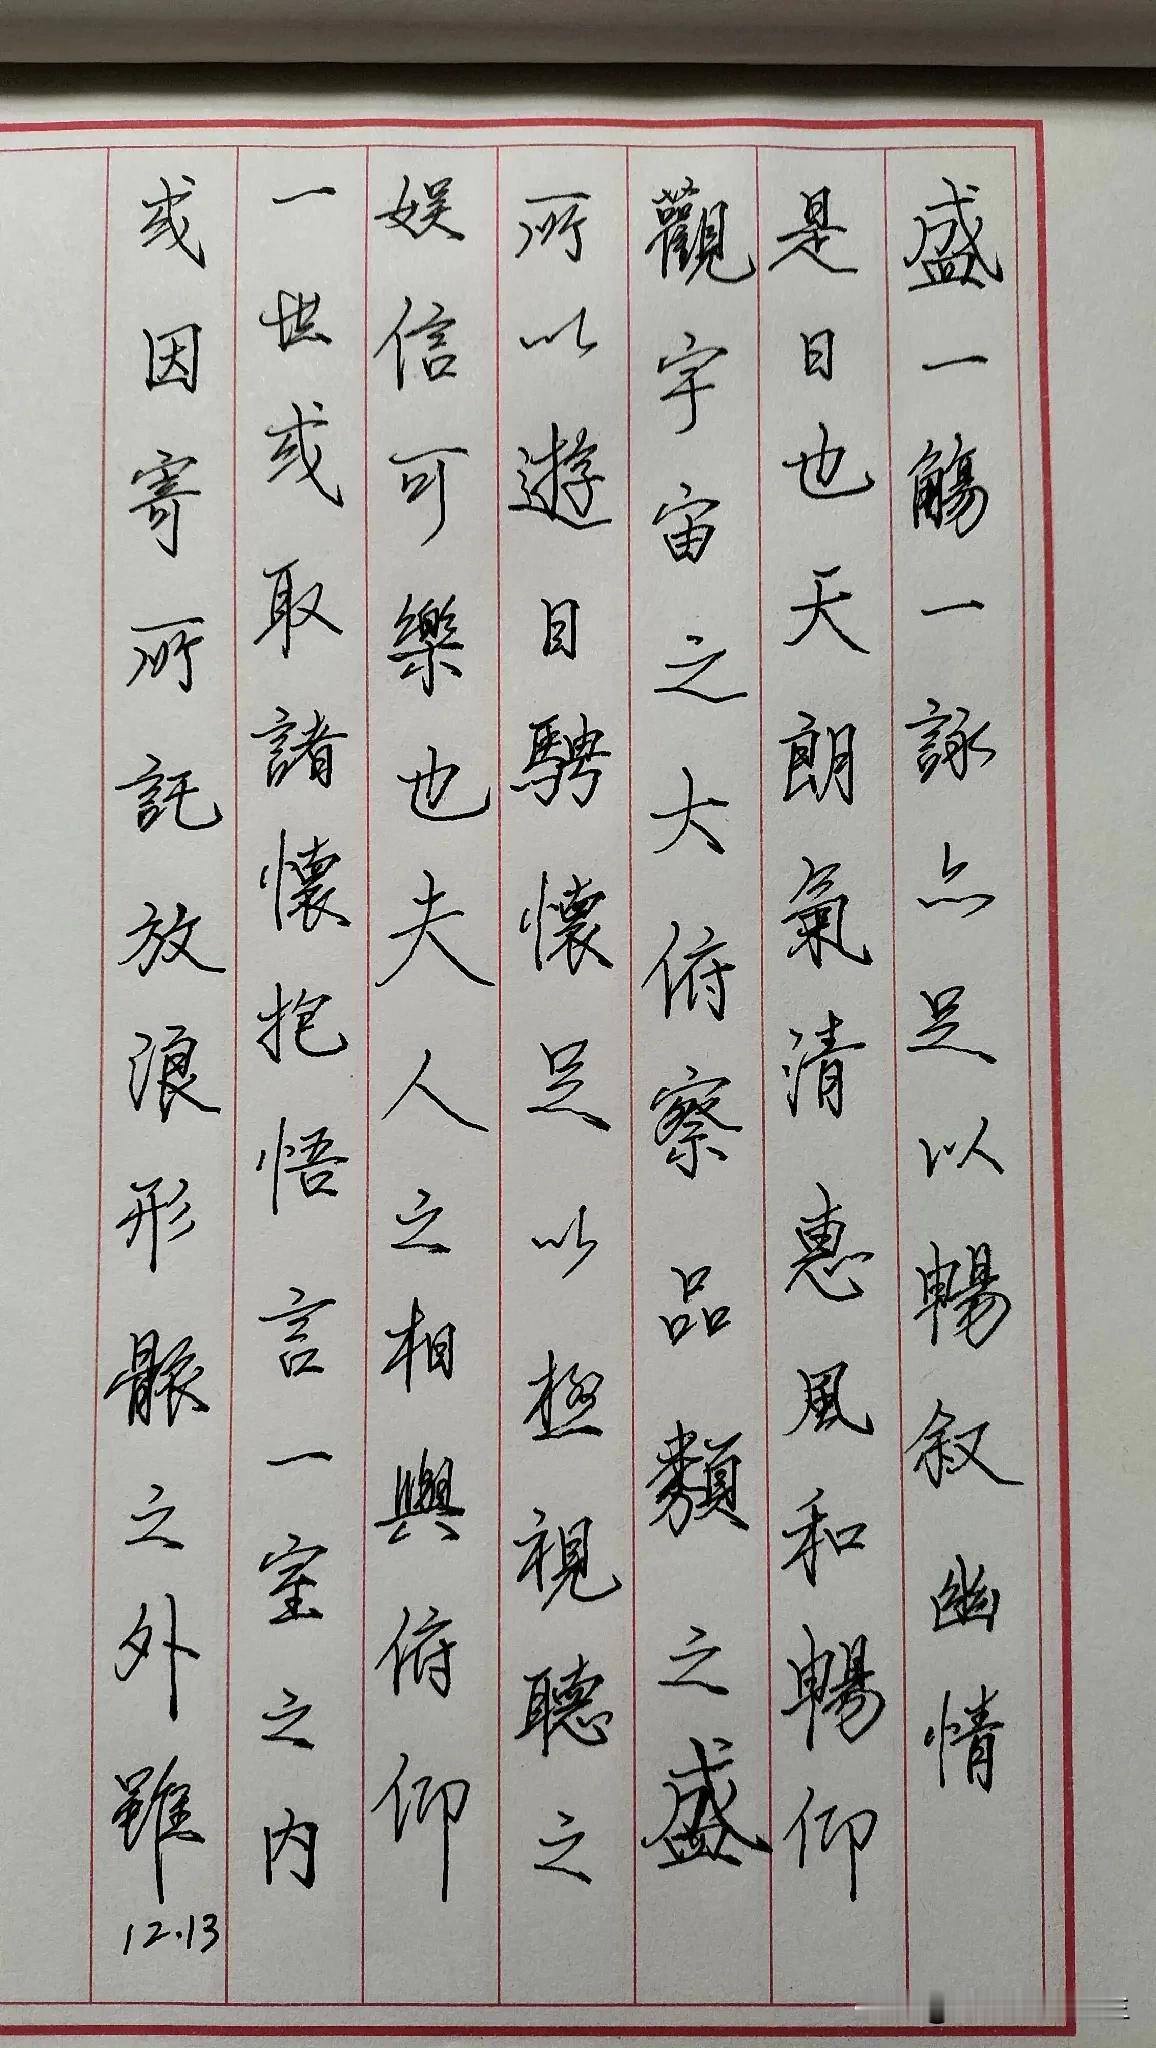 盛一觴一詠亦足以暢叙幽情
是日也天朗氣清惠風和暢仰
觀宇宙之大俯察品類之盛
所以遊目騁懷足以極視聽之
娱信可樂也夫人之相與俯仰
一世或取諸懷抱悟言一室之内
或因寄所託放浪形骸之外雖
12.13